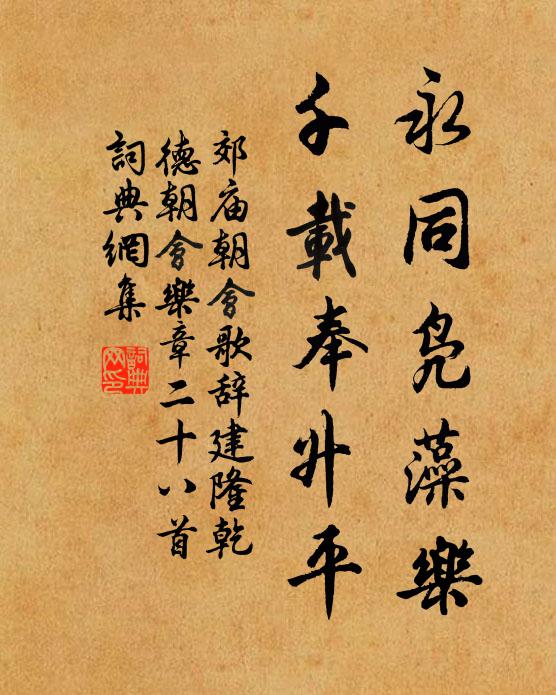 永同鳧藻樂
千載奉升平
郊庙朝會歌辞建隆乾
德朝會樂章二十八首
詞典網集